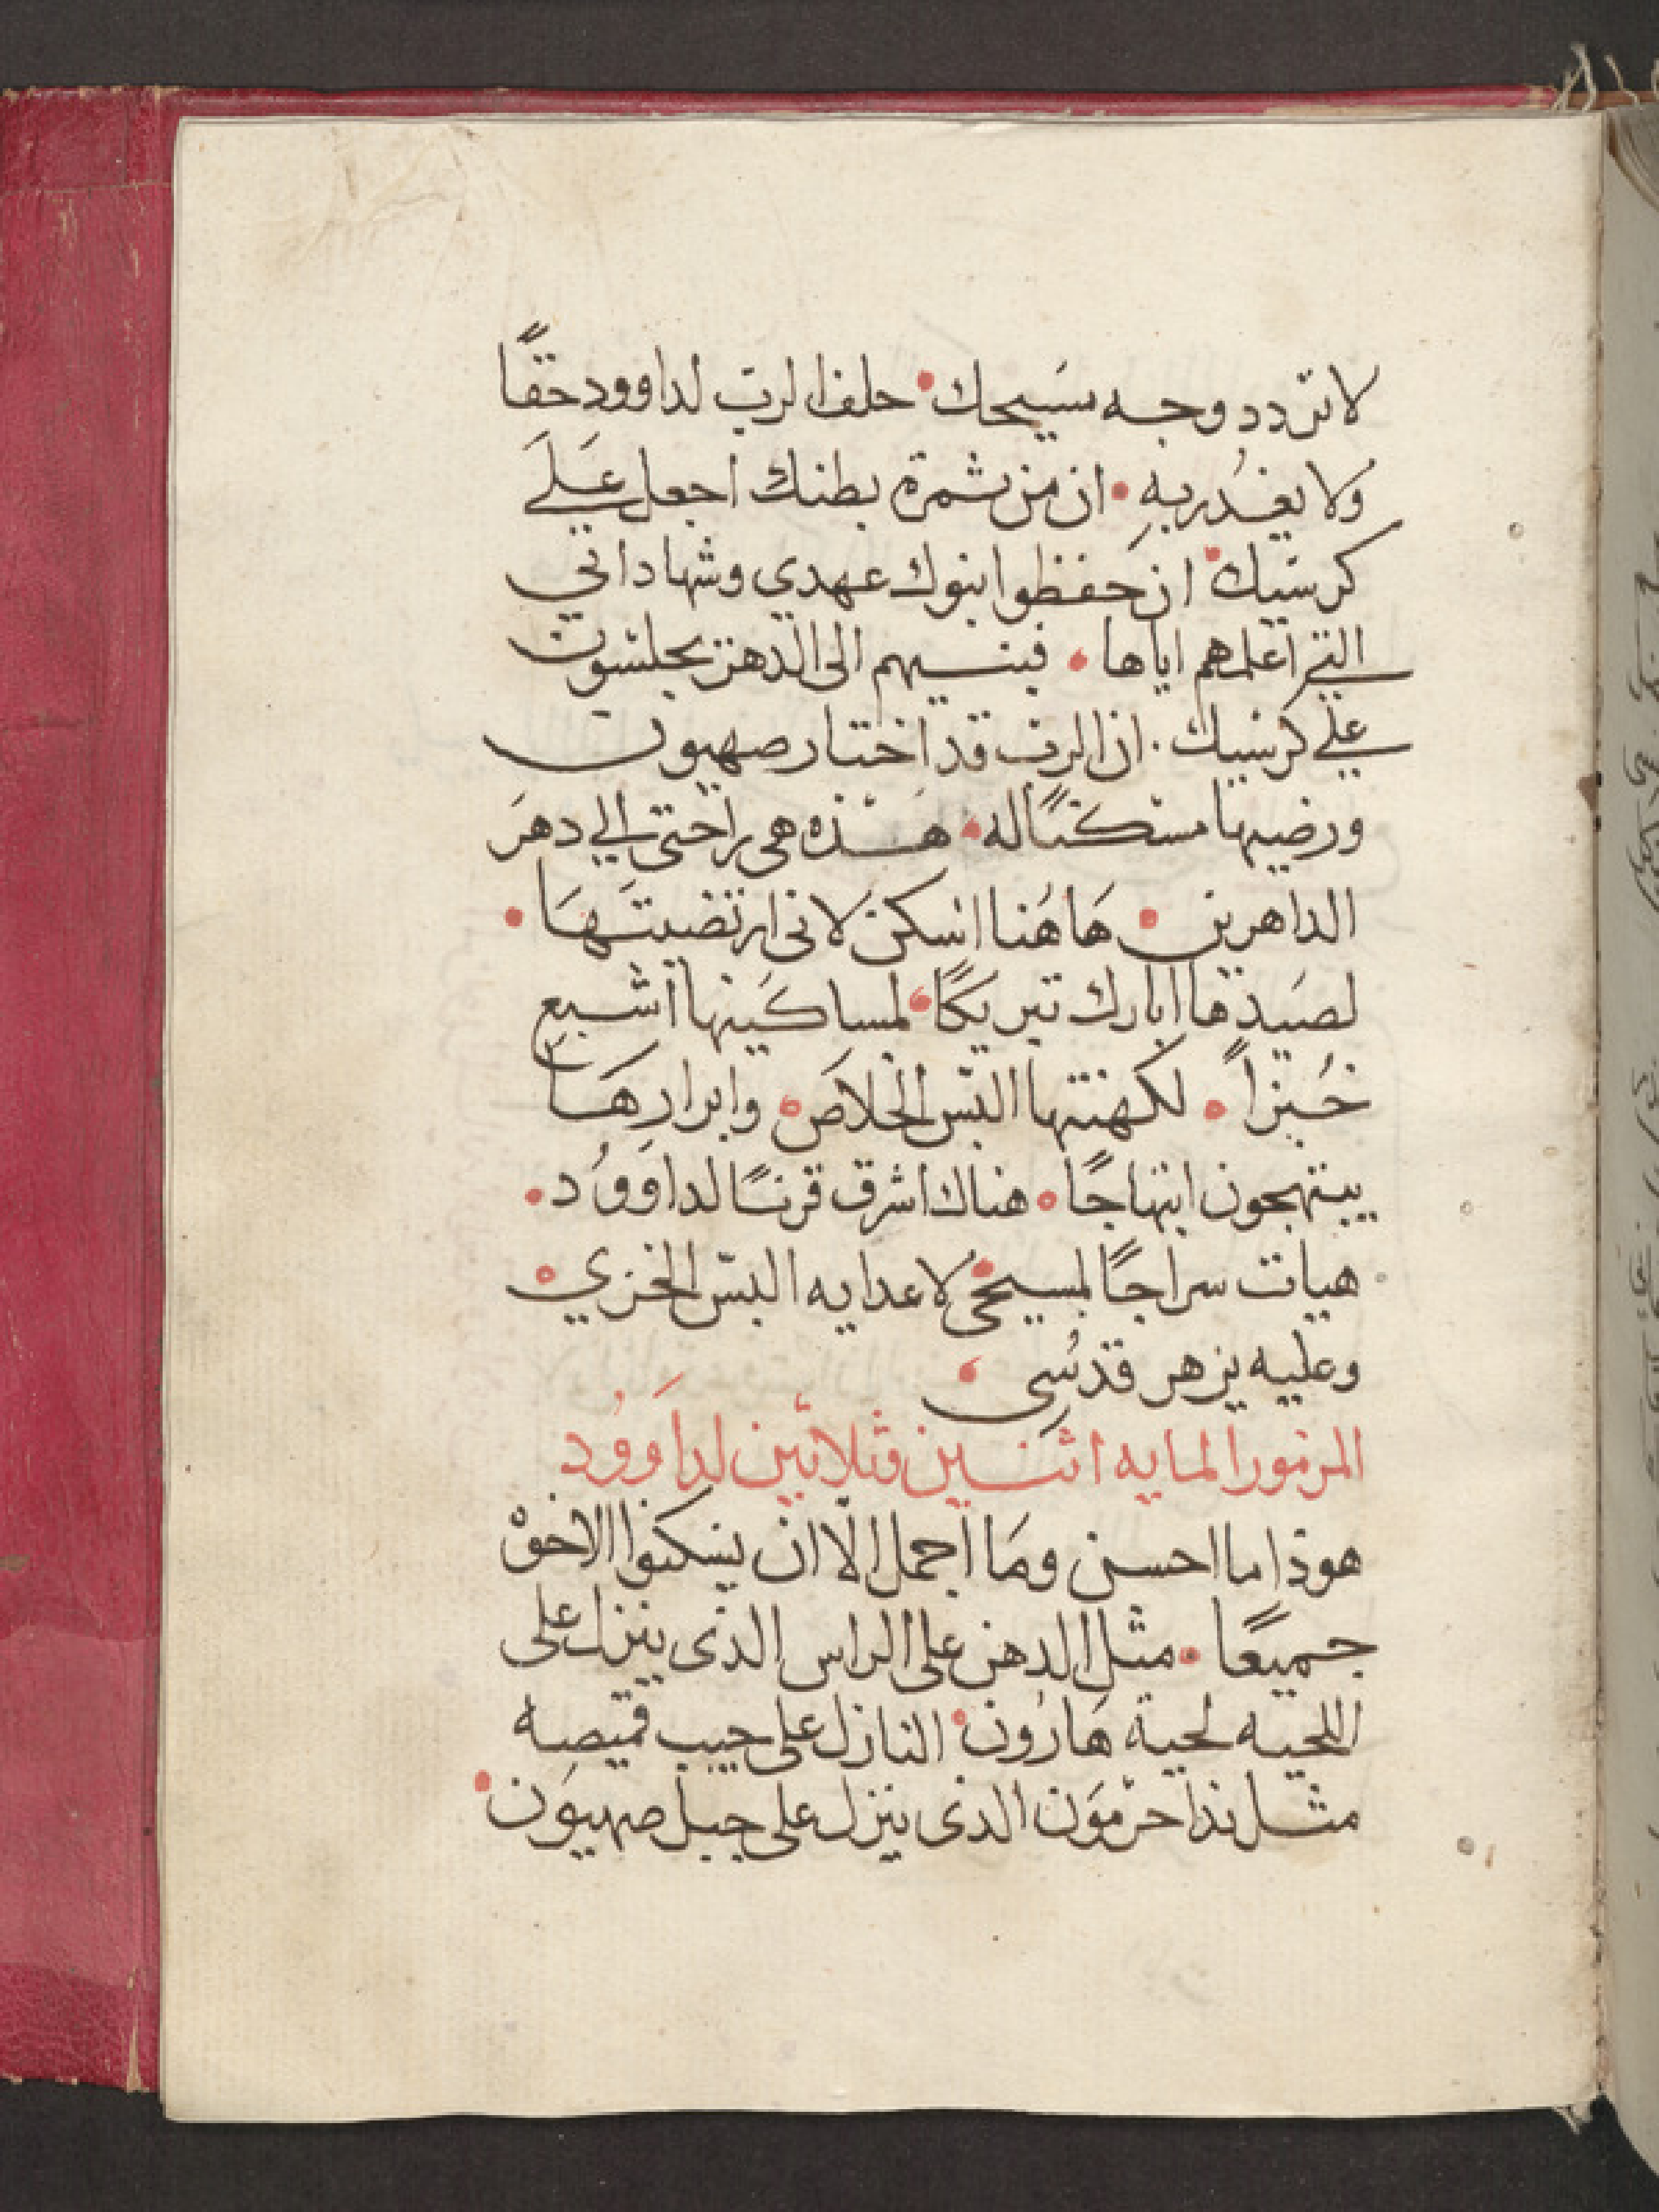 لا تردد وجه مسيحك • حلف الرب لداوود حقًا
ولا يغدُر به • ان من ثمرة بطنك اجعل علىَ
كرسيك • ان حفظوا بنوك عهدي وشهاداتي
التي اعلمهم اياها • فبنيهم الى الدهر يجلسون
على كرسيك . ان الرب قد اختار صهيون
ورضيها مسكنًا له • هذه هى راحتى الي دهرَ
الداهرين • هَاهُنا اسكن لانى ارتضيتَهَا •
لصَيدها ابارك تبريكًا • لمساكَينها اشبع
خُبزاً • لكهنتها البس الخلاصَ • وابرارِهَا
يبتهجون ابتهاجًا • هناك اشرق قرنًا لداوَوُد •
هيات سراجًا لمسيحى • لاعدايه البس الخزي •
وعليه يزهر قدسُى •
المزمور المايه اثنَين وثلاثين لداوَوُد
هوذا ما احسن ومَا اجمل الّا ان يسكنوا الاخوه
جميعًا • مثل الدهن على الراس الذى ينزل على
اللحيه لحية هَارُون • النازل على جيب قميصه
مثل ندا حرْموَن الذى ينزل على جبل صهيوَن •